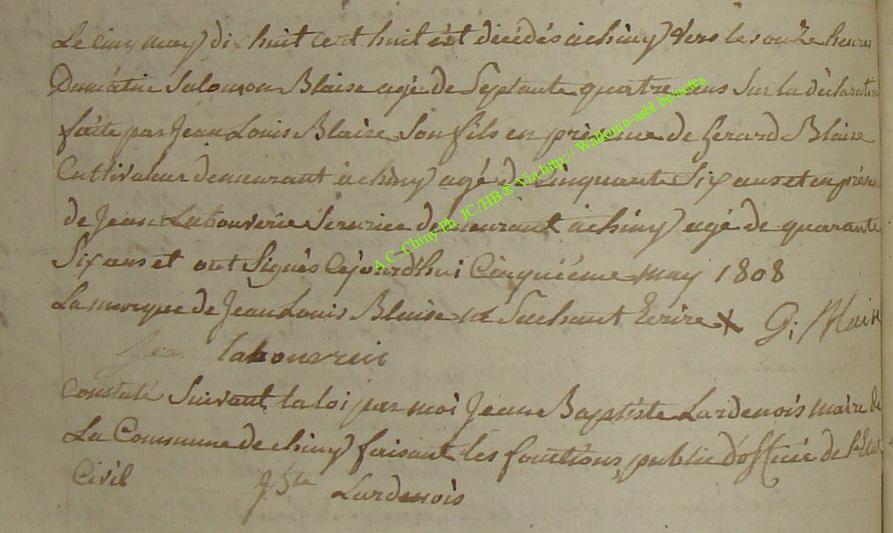 Le cinq may dix huit cent huit est décédés a chiny vers les onze heures
Dumatin Salomon Blaise agé de Septante quatre ans Sur la déclaration
faite par Jean Louis Blaise Son fils en présence de Gerard Blaise
Cultivateur demeurant a chiny agé de Cinquante Six ans et en présence
de Jean Labouverie demeurant a chiny agé de quarante
Six ans et ont Signés Cejourd'hui Cinquiéme may 1808
La marque de Jean Louis Blaise ne Sachant Ecrire X G: Blaise
Jean labouverie
Constaté Suivant la loi par moi Jean Baptiste Lardenois maire de
La Commune de chiny faisant les fonctions public d'officié de l'Etat
Civil J Bte Lardenois
A.C. Chiny Ph. JC/HB® Via http://Wallonia-asbl.be/actes